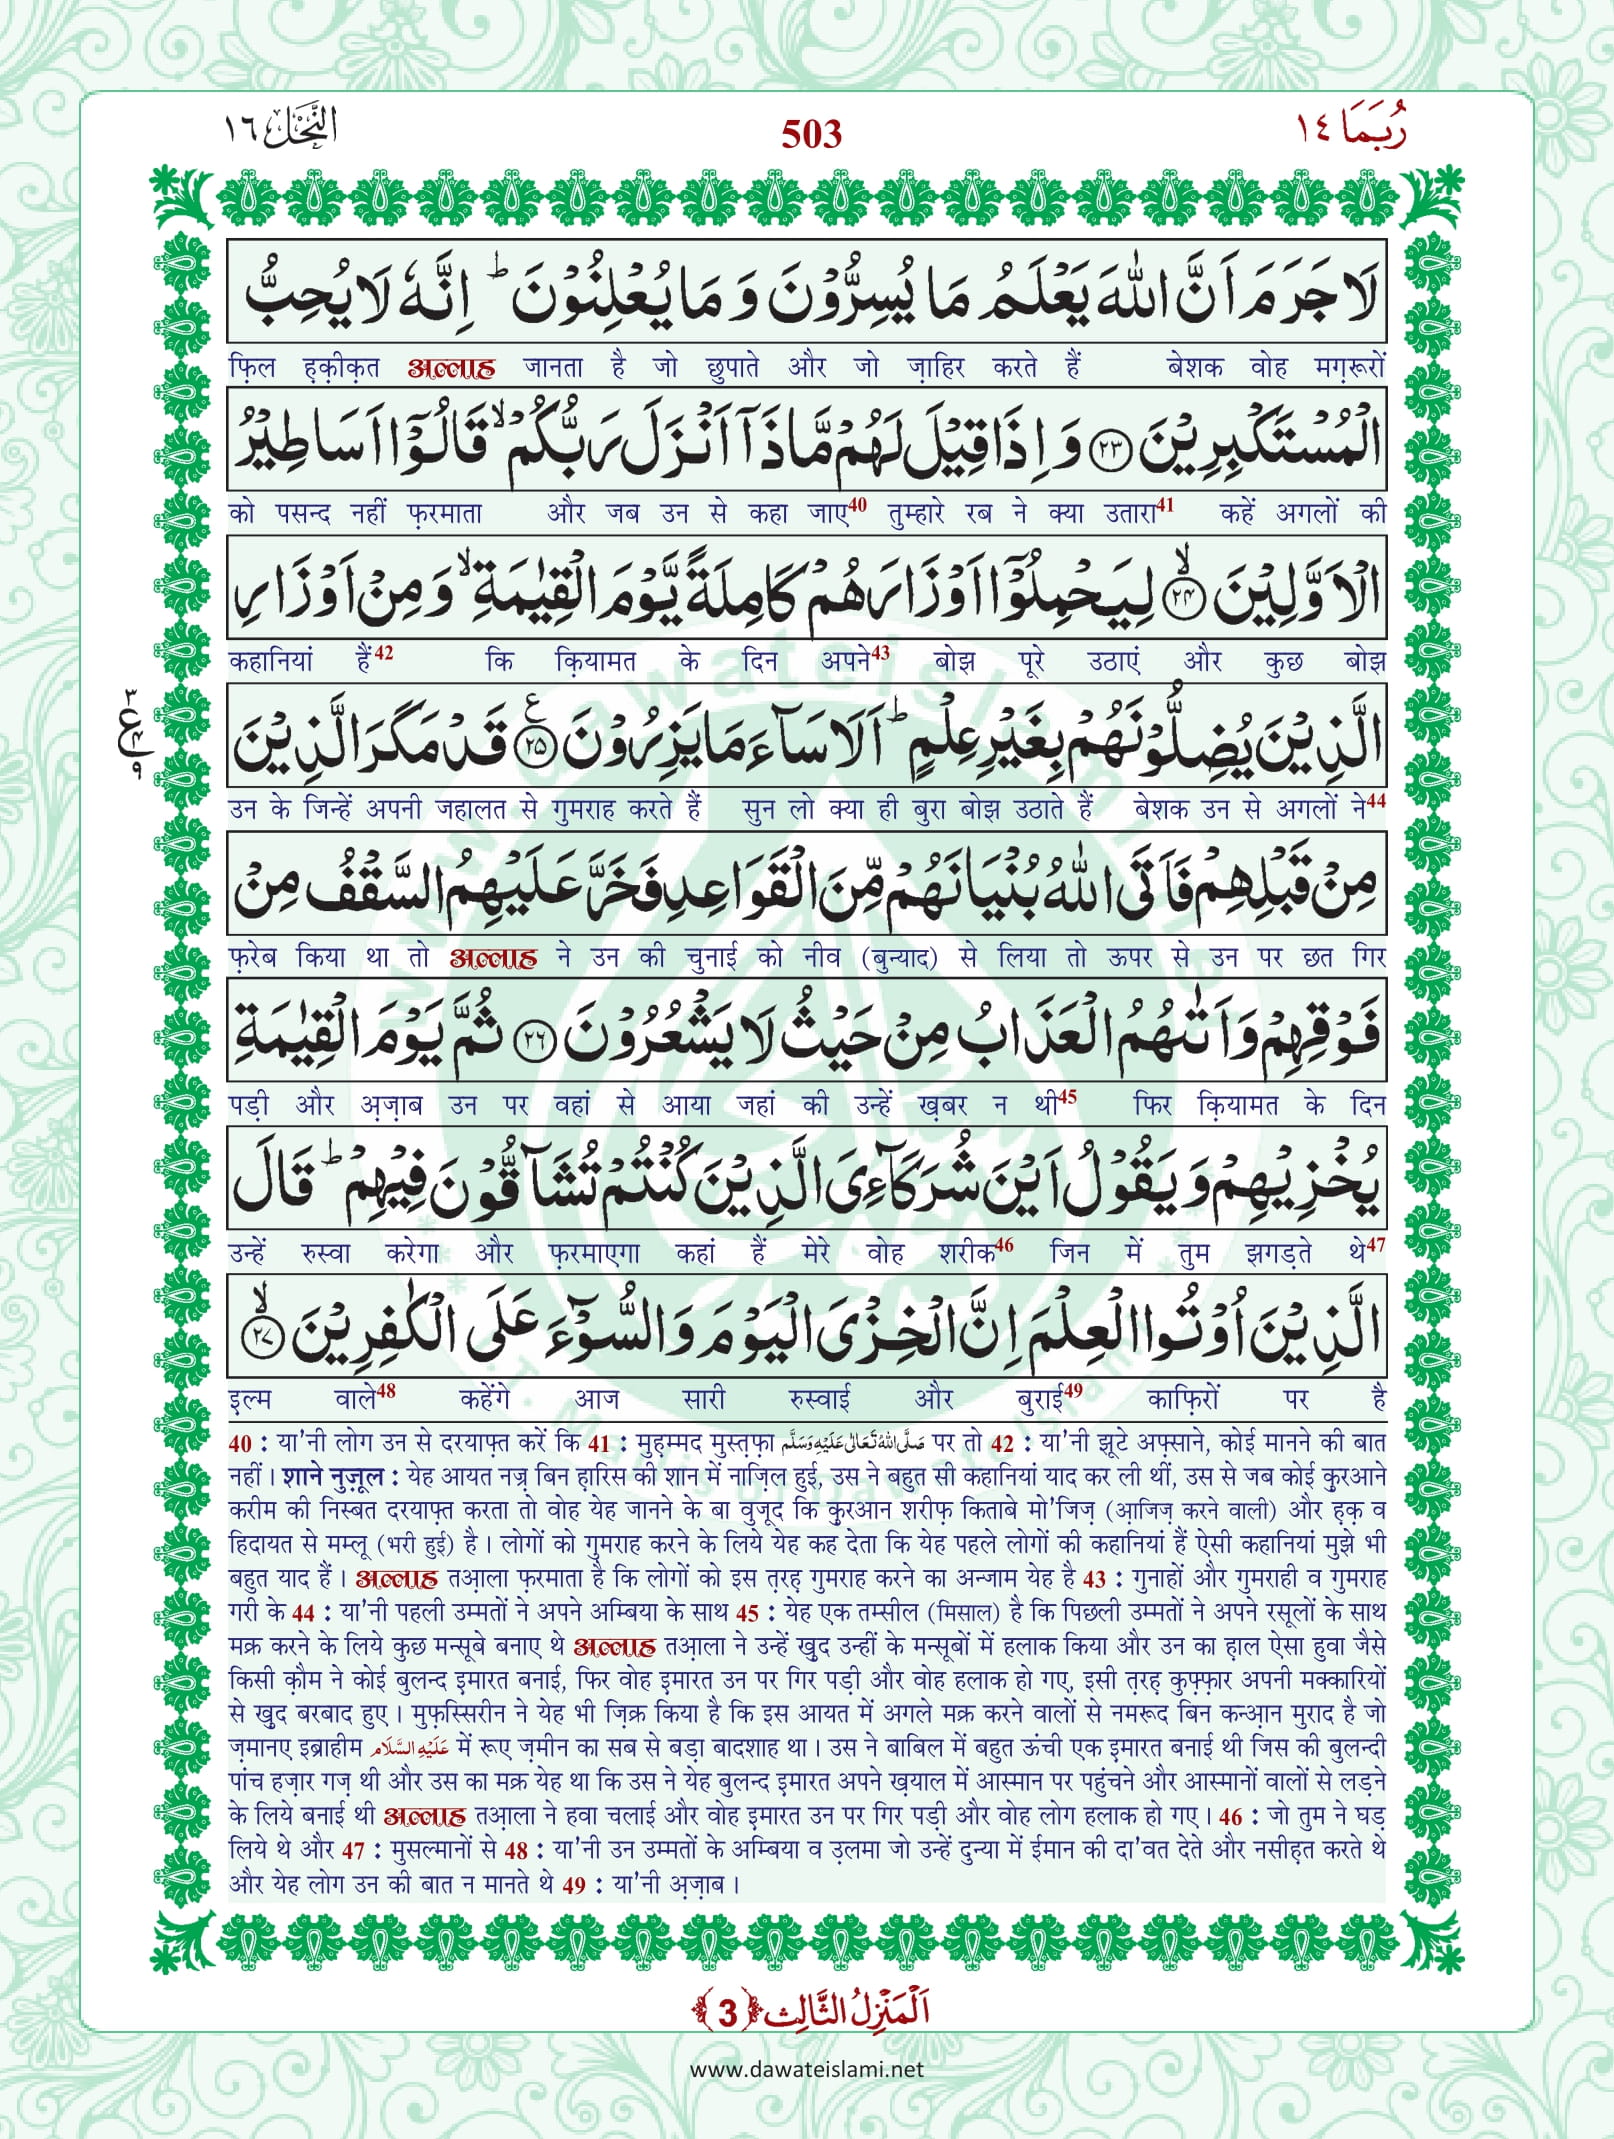 النَّحْل ١٦
503
رُبَمَا ١٤
لَا جَرَمَ اَنَّ اللّٰهَ يَعْلَمُ مَا يُسِرُّوْنَ وَ مَا يُعْلِنُوْنَ ؕ اِنَّهٗ لَا يُحِبُّ
फ़िल हक़ीक़त अल्लाह जानता है जो छुपाते और जो ज़ाहिर करते हैं बेशक वोह मग़रूरों
الْمُسْتَكْبِرِيْنَ ﴿۲۳﴾ وَ اِذَا قِيْلَ لَهُمْ مَّا ذَاۤ اَنْزَلَ رَبُّكُمْ ۙ قَالُوْۤا اَسَاطِيْرُ
को पसन्द नहीं फ़रमाता और जब उन से कहा जाए40 तुम्हारे रब ने क्या उतारा41 कहें अगलों की
الْاَوَّلِيْنَ ﴿ۙ۲۴﴾ لِيَحْمِلُوْۤا اَوْزَارَهُمْ كَامِلَةً يَّوْمَ الْقِيٰمَةِ ۙ وَ مِنْ اَوْزَارِ
कहानियां हैं42 कि क़ियामत के दिन अपने43 बोझ पूरे उठाएं और कुछ बोझ
الَّذِيْنَ يُضِلُّوْنَهُمْ بِغَيْرِ عِلْمٍ ؕ اَلَا سَآءَ مَا يَزِرُوْنَ ﴿۲۵﴾ ع قَدْ مَكَرَ الَّذِيْنَ
٣ ع ٤ ٩
उन के जिन्हें अपनी जहालत से गुमराह करते हैं सुन लो क्या ही बुरा बोझ उठाते हैं बेशक उन से अगलों ने44
مِنْ قَبْلِهِمْ فَاَتَى اللّٰهُ بُنْيَانَهُمْ مِّنَ الْقَوَاعِدِ فَخَرَّ عَلَيْهِمُ السَّقْفُ مِنْ
फ़रेब किया था तो अल्लाह ने उन की चुनाई को नीव (बुन्याद) से लिया तो ऊपर से उन पर छत गिर
فَوْقِهِمْ وَ اَتٰىهُمُ الْعَذَابُ مِنْ حَيْثُ لَا يَشْعُرُوْنَ ﴿۲۶﴾ ثُمَّ يَوْمَ الْقِيٰمَةِ
पड़ी और अज़ाब उन पर वहां से आया जहां की उन्हें ख़बर न थी45 फिर क़ियामत के दिन
يُخْزِيْهِمْ وَ يَقُوْلُ اَيْنَ شُرَكَآءِىَ الَّذِيْنَ كُنْتُمْ تُشَآقُّوْنَ فِيْهِمْ ؕ قَالَ
उन्हें रुस्वा करेगा और फ़रमाएगा कहां हैं मेरे वोह शरीक46 जिन में तुम झगड़ते थे47
الَّذِيْنَ اُوْتُوا الْعِلْمَ اِنَّ الْخِزْىَ الْيَوْمَ وَ السُّوْٓءَ عَلَى الْكٰفِرِيْنَ ﴿ۙ۲۷﴾
इल्म वाले48 कहेंगे आज सारी रुस्वाई और बुराई49 काफ़िरों पर है
40 : या'नी लोग उन से दरयाफ़्त करें कि 41 : मुहम्मद मुस्तफ़ा صَلَّى اللهُ تَعَالٰى عَلَيْهِ وَسَلَّم पर तो 42 : या'नी झूटे अफ़्साने, कोई मानने की बात
नहीं। शाने नुज़ूल : येह आयत नज़्र बिन हारिस की शान में नाज़िल हुई, उस ने बहुत सी कहानियां याद कर ली थीं, उस से जब कोई क़ुरआने
करीम की निस्बत दरयाफ़्त करता तो वोह येह जानने के बा वुजूद कि क़ुरआन शरीफ़ किताबे मो'जिज़ (आजिज़ करने वाली) और हक़ व
हिदायत से मम्लू (भरी हुई) है। लोगों को गुमराह करने के लिये येह कह देता कि येह पहले लोगों की कहानियां हैं ऐसी कहानियां मुझे भी
बहुत याद हैं। अल्लाह तआला फ़रमाता है कि लोगों को इस तरह गुमराह करने का अन्जाम येह है 43 : गुनाहों और गुमराही व गुमराह
गरी के 44 : या'नी पहली उम्मतों ने अपने अम्बिया के साथ 45 : येह एक तम्सील (मिसाल) है कि पिछली उम्मतों ने अपने रसूलों के साथ
मक्र करने के लिये कुछ मन्सूबे बनाए थे अल्लाह तआला ने उन्हें खुद उन्हीं के मन्सूबों में हलाक किया और उन का हाल ऐसा हुवा जैसे
किसी क़ौम ने कोई बुलन्द इमारत बनाई, फिर वोह इमारत उन पर गिर पड़ी और वोह हलाक हो गए, इसी तरह कुफ़्फ़ार अपनी मक्कारियों
से खुद बरबाद हुए। मुफ़स्सिरीन ने येह भी ज़िक्र किया है कि इस आयत में अगले मक्र करने वालों से नमरूद बिन कन्आन मुराद है जो
ज़मानए इब्राहीम عَلَيْهِ السَّلَام में रूए ज़मीन का सब से बड़ा बादशाह था। उस ने बाबिल में बहुत ऊंची एक इमारत बनाई थी जिस की बुलन्दी
पांच हज़ार गज़ थी और उस का मक्र येह था कि उस ने येह बुलन्द इमारत अपने ख़याल में आस्मान पर पहुंचने और आस्मानों वालों से लड़ने
के लिये बनाई थी अल्लाह तआला ने हवा चलाई और वोह इमारत उन पर गिर पड़ी और वोह लोग हलाक हो गए। 46 : जो तुम ने घड़
लिये थे और 47 : मुसल्मानों से 48 : या'नी उन उम्मतों के अम्बिया व उलमा जो उन्हें दुन्या में ईमान की दा'वत देते और नसीहत करते थे
और येह लोग उन की बात न मानते थे 49 : या'नी अज़ाब।
اَلْمَنْزِلُ الثَّالِث ﴿3﴾
www.dawateislami.net